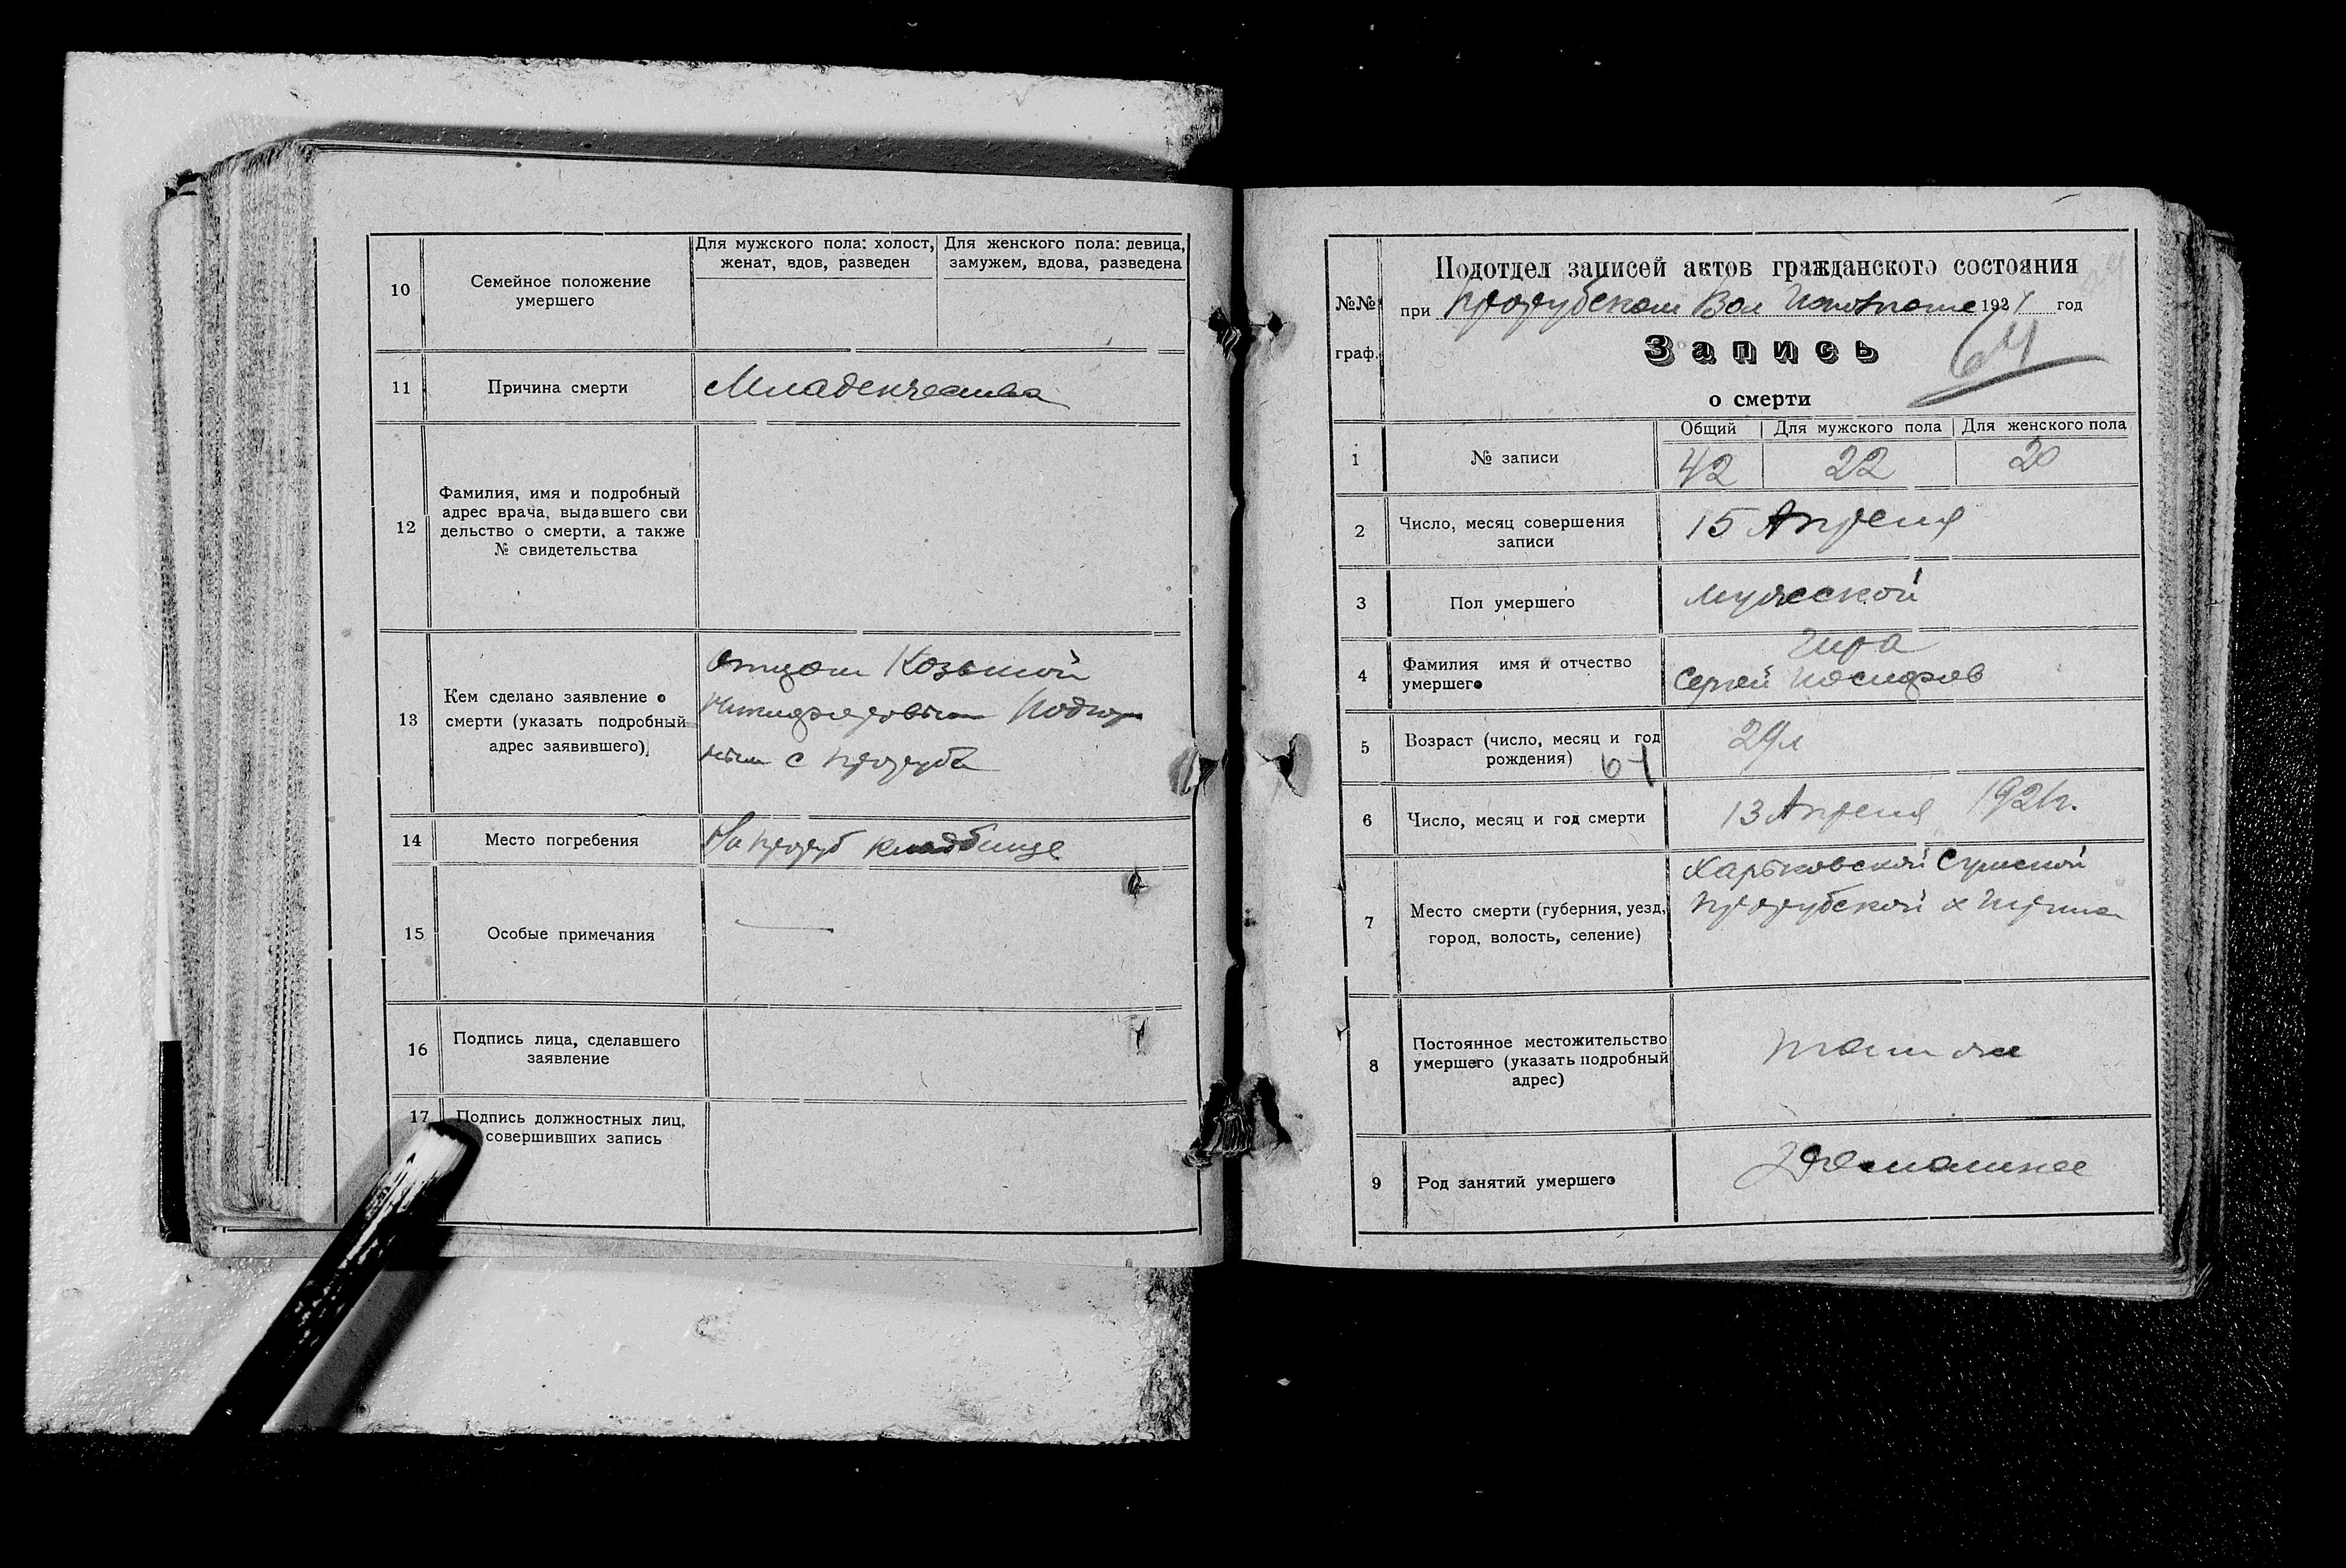 10
Семейное положение
умершего
Для мужского пола: холост,
женат, вдов, разведен
Для женского пола: девица,
замужем, вдова, разведена
11
Причина смерти
Младенчества
12
Фамилия, имя и подробный
адрес врача, выдавшего сви
дельство о смерти, а также
№ свидетельства
13
Кем сделано заявление о
смерти (указать подробный
адрес заявившего)
Отцом Козьмой
с Прорубa
14
Место погребения
На Проруб кладбище
15
Особые примечания
16
Подпись лица, сделавшего
заявление
17
Подпись должностных лиц,
совершивших запись
№№
граф.
Подотдел записей актов гражданского состояния
при Прорубском Вол Исполкоме 1921 год
Запись
64
о смерти
1
№ записи
Общий
Для мужского пола
Для женского пола
42
22
20
2
Число, месяц совершения
записи
15 Апреля
3
Пол умершего
мужской
4
Фамилия имя и отчество
умершего
Сергей Иосифов
5
Возраст (число, месяц и год
рождения)
29л
6
Число, месяц и год смерти
13 Апреля 1921г.
7
Место смерти (губерния, уезд,
город, волость, селение)
Харьковской Сумской
Прорубской х
8
Постоянное местожительство
умершего (указать подробный
адрес)
там же
9
Род занятий умершего
Домашнее